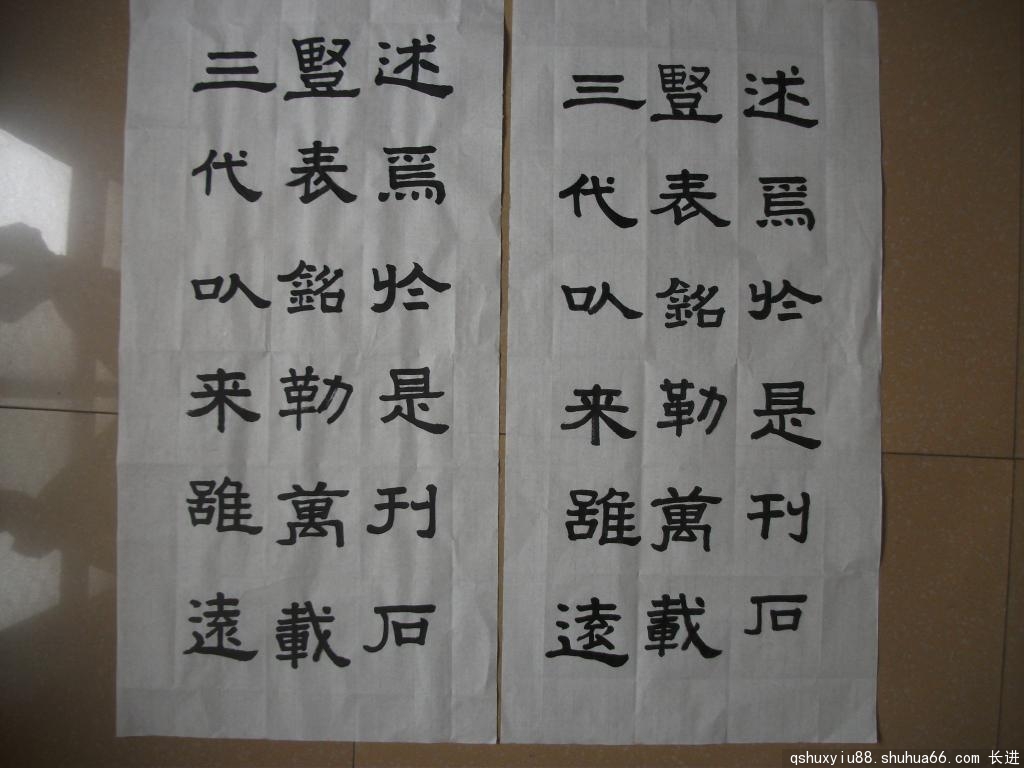 述焉於是刊石
豎表銘勒萬載
三代以来雖遠
述焉於是刊石
豎表銘勒萬載
三代以来雖遠
qshuxyiu88.shuhua66.com 长进